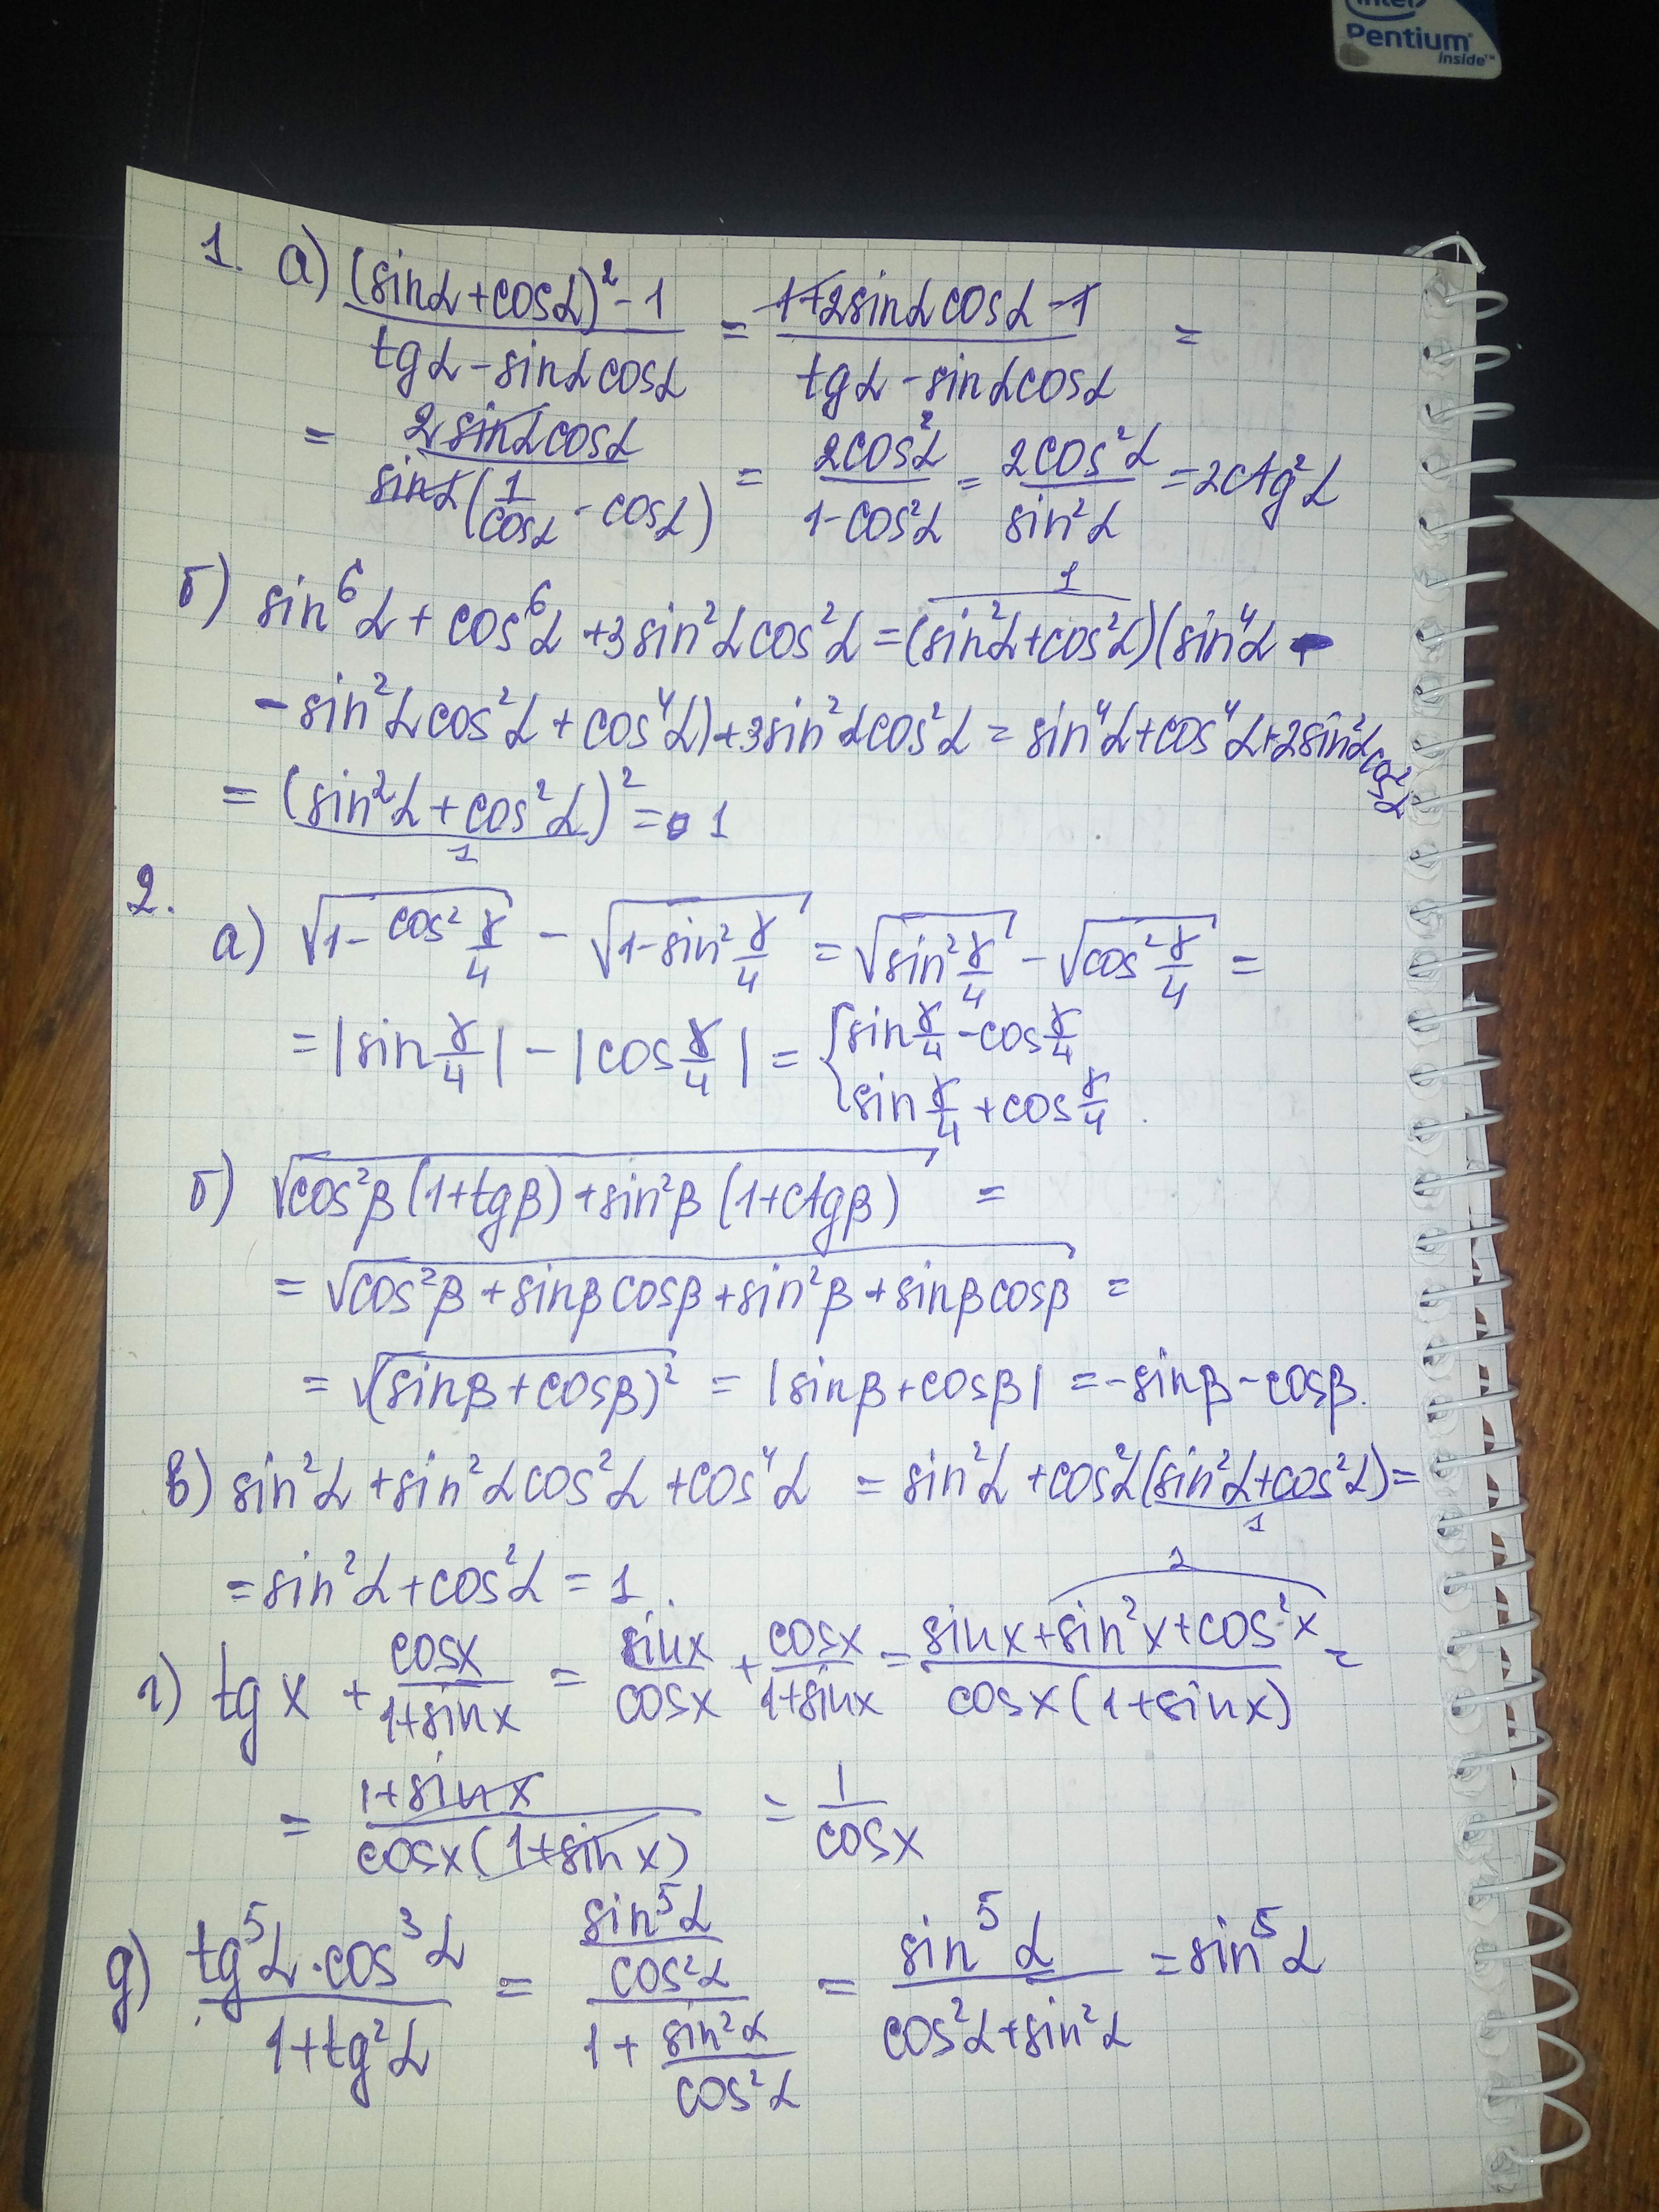 intel
Pentium
inside™
1. а) ((sinα+cosα)² - 1)/(tgα - sinα cosα) = (1+2sinα cosα - 1)/(tgα - sinα cosα) =
= (2 sinα cosα)/(sinα(1/cosα - cosα)) = (2cos²α)/(1-cos²α) = (2cos²α)/(sin²α) = 2ctg²α
б) sin⁶α + cos⁶α + 3sin²α cos²α = (sin²α+cos²α)(sin⁴α - 1
- sin²α cos²α + cos⁴α) + 3sin²α cos²α = sin⁴α + cos⁴α + 2sin²α cos²α
= (sin²α + cos²α)² = 1
1
2.
а) √(1 - cos² γ/4) - √(1-sin² γ/4) = √(sin² γ/4) - √(cos² γ/4) =
= |sin γ/4| - |cos γ/4| = { sin γ/4 - cos γ/4
sin γ/4 + cos γ/4 .
б) √(cos²β (1+tgβ) + sin²β (1+ctgβ)) =
= √(cos²β + sinβ cosβ + sin²β + sinβ cosβ) =
= √((sinβ + cosβ)²) = |sinβ + cosβ| = -sinβ - cosβ.
в) sin²α + sin²α cos²α + cos⁴α = sin²α + cos²α(sin²α+cos²α) =
1
= sin²α + cos²α = 1.
г) tg x + cosx/(1+sinx) = sinx/cosx + cosx/(1+sinx) = (sinx + sin²x + cos²x)/(cosx(1+sinx)) =
= (1+sinx)/(cosx(1+sinx)) = 1/cosx
д) (tg⁵α · cos³α)/(1+tg²α) = (sin⁵α/cos²α)/(1 + sin²α/cos²α) = sin⁵α/(cos²α+sin²α) = sin⁵α